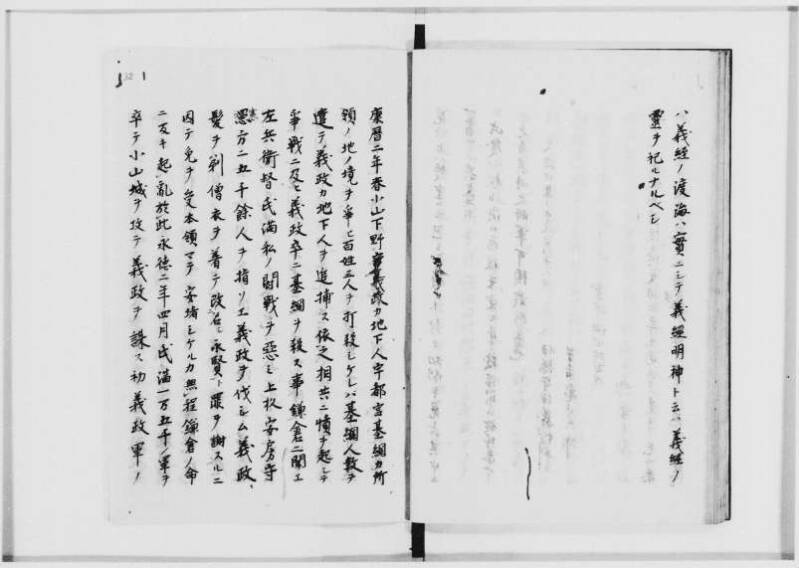 ハ義経ノ渡海ハ實ニシテ義經明神ト云ハ義経ノ
靈ヲ祀ルナルベシ
康暦二年春小山下野守義政カ地下人宇都宮基綱カ所
領ノ地ノ境ヲ爭ヒ百姓三人ヲ打殺シケレバ基綱人数ヲ
遣テ義政カ地下人ヲ追捕ス依之相共ニ憤ヲ起シテ
爭戦ニ及ヒ義政卒ニ基綱ヲ殺ス事鎌倉ニ聞エ
左兵衛督氏満私ノ闘戦ヲ惡ミ上杦安房守
憲方ニ五千餘人ヲ指ソエ義政ヲ伐シム義政
髪ヲ剃僧衣ヲ着テ改名永賢ト罪ヲ謝スルニ
因テ免ヲ受本領マテ安堵シケルカ無程鎌倉ノ命
ニ反キ起乱於此永徳二年四月氏満一万五千ノ軍ヲ
卒テ小山城ヲ攻テ義政ヲ誅ス初義政軍ノ